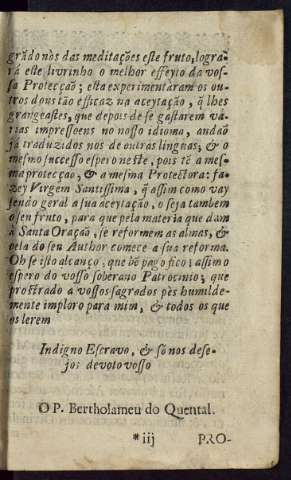 grãdo nòs das meditações este fruto, logra-
rá este livrinho o melhor effeyto da vos-
sa Protecçaõ; esta experimentaram os ou-
tros dous taõ efficaz na aceytaçaõ, q̃ lhes
grangeastes, que depois de se gastarem vá-
rias impressoens no nosso idioma, andaõ
já traduzidos nos de outras linguas; & o
mesmo successo espero neste, pois tẽ a mes-
ma protecçaõ, & a mesma Protectora: fa-
zey Virgem Santissima, q̃ assim como vay
sendo geral a sua aceytaçaõ, o seja tambem
o seu fruto, para que pela materia que dam
à Santa Oraçaõ, se reformem as almas, &
pela do seu Author comece a sua reforma.
Oh se isto alcanço, que bõ pago fico; assim o
espero do vosso soberano Patrocinio; que
prostrado a vossos sagrados pès humilde-
mente imploro para mim, & todos os que
os lerem
Indigno Escravo, & sò nos dese-
jos devoto vosso
O P. Bertholameu do Quental.
*iij PRO-